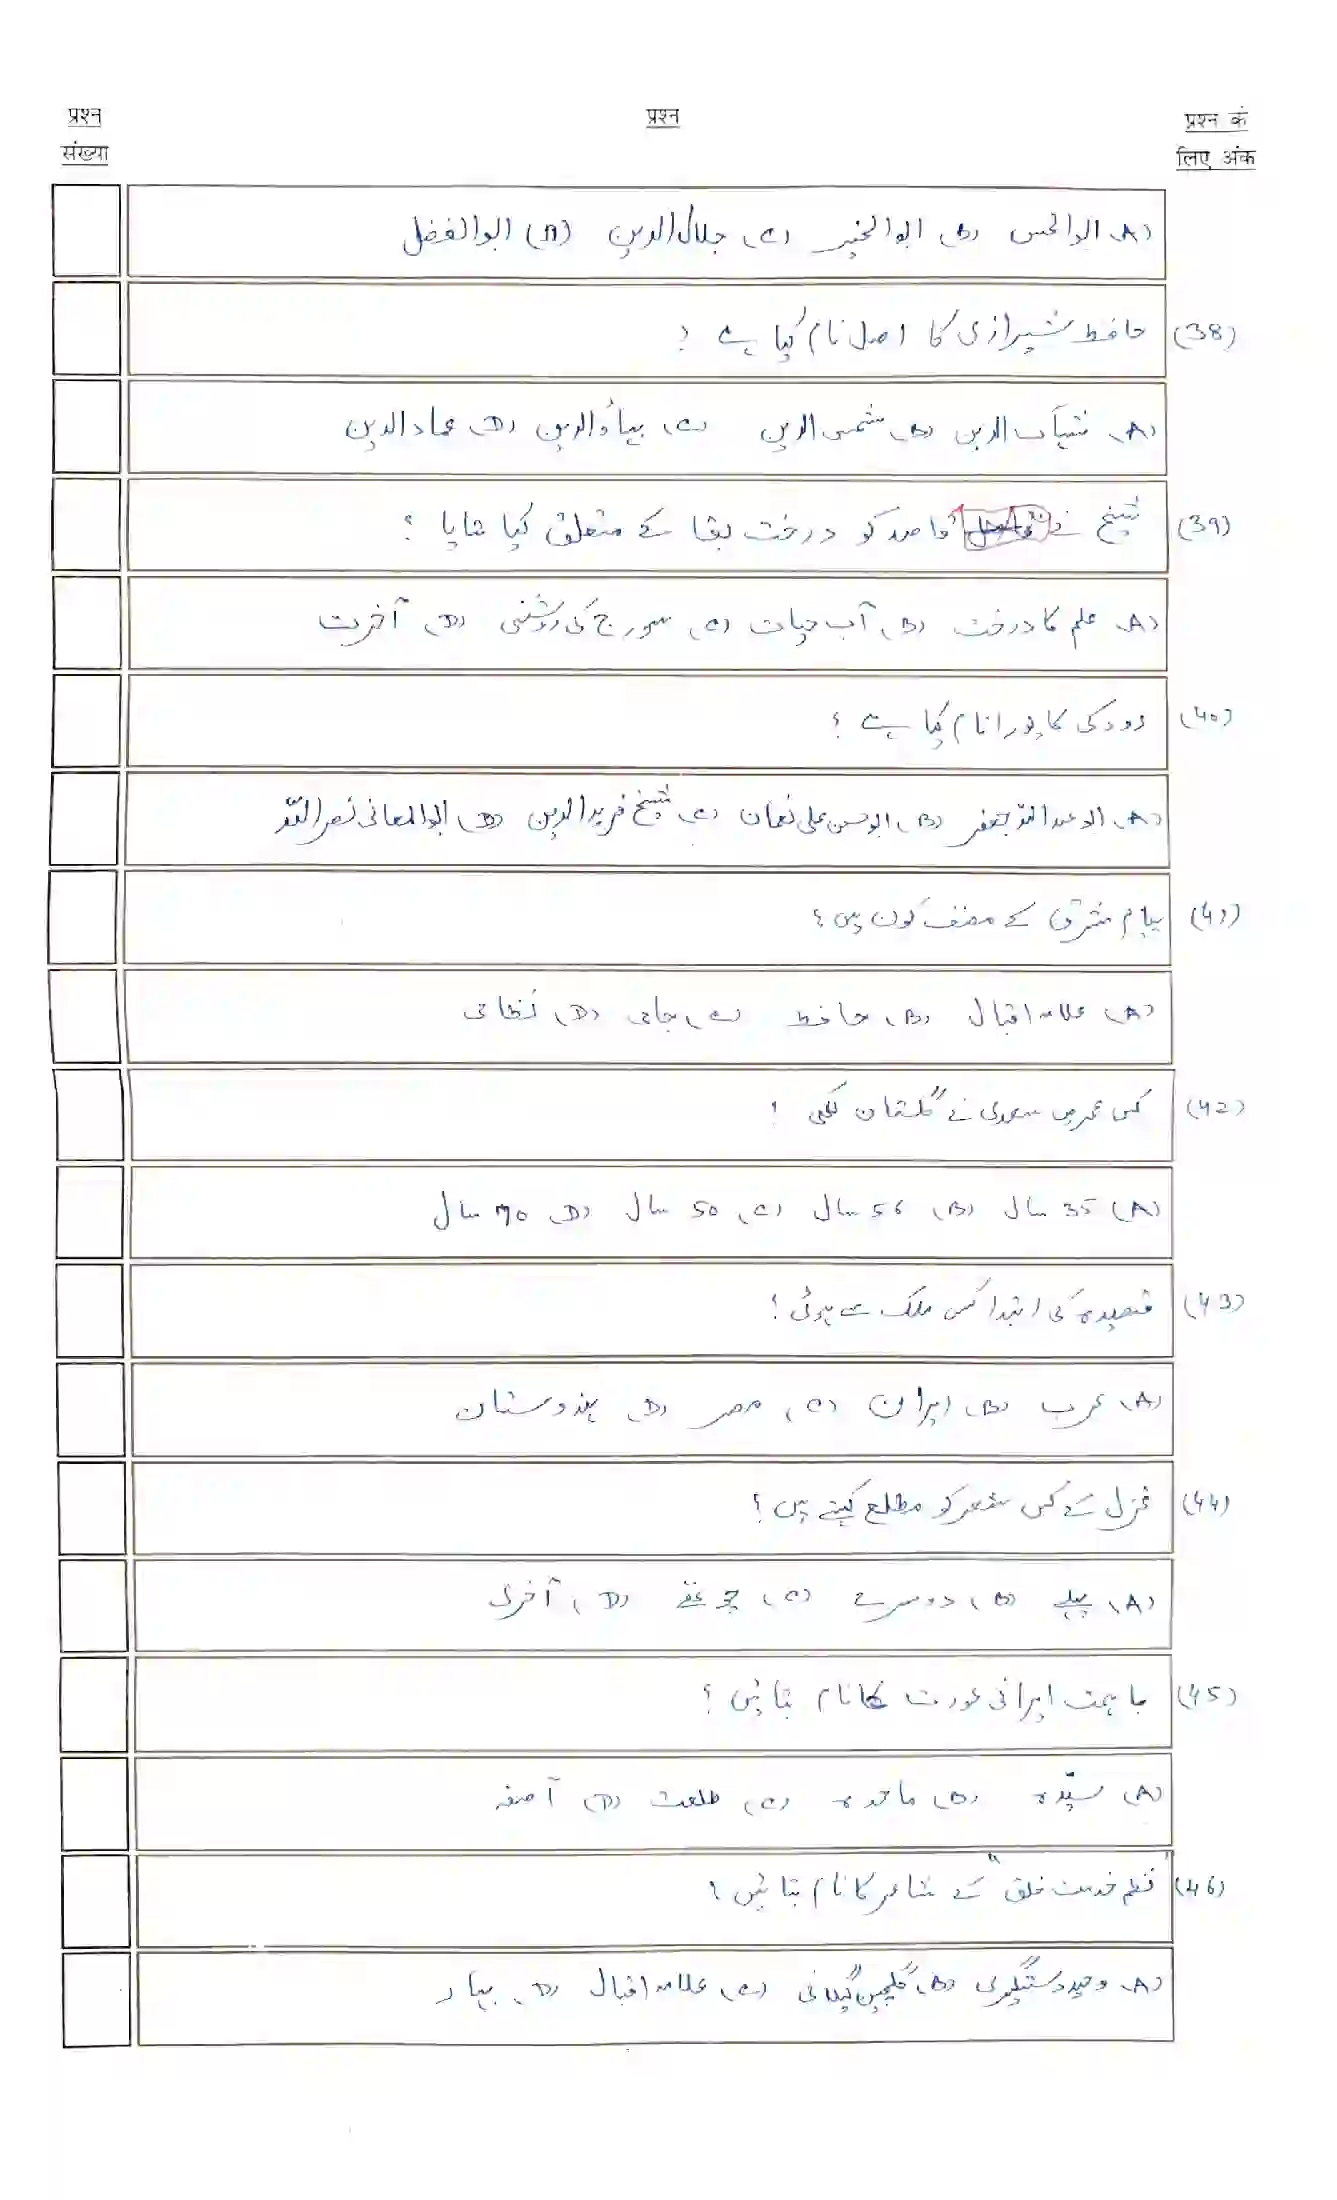 प्रश्न संख्या
प्रश्न
प्रश्न के लिए अंक
(A) ابوالحسن (B) ابوالخیر (C) جلال الدین (D) ابوالفضل
(38) حافظ شیرازی کا اصل نام کیا ہے ؟
(A) شہاب الدین (B) شمس الدین (C) بہاؤالدین (D) عماد الدین
(39) شیخ نے قاصد کو درخت بقا کے متعلق کیا بتایا ؟
(A) علم کا درخت (B) آب حیات (C) سورج کی روشنی (D) آخرت
(40) رودکی کا پورا نام کیا ہے ؟
(A) ابو عبداللہ جعفر (B) ابوحسن علی نعمان (C) شیخ فریدالدین (D) ابوالمعانی نصراللہ
(41) پیام مشرق کے مصنف کون ہیں ؟
(A) علامہ اقبال (B) حافظ (C) جامی (D) نظامی
(42) کس عمر میں سعدی نے گلستان لکھی ؟
(A) 35 سال (B) 56 سال (C) 50 سال (D) 70 سال
(43) قصیدہ کی ابتدا کس ملک سے ہوئی ؟
(A) عرب (B) ایران (C) مصر (D) ہندوستان
(44) غزل کے کس شعر کو مطلع کہتے ہیں ؟
(A) پہلے (B) دوسرے (C) چوتھے (D) آخری
(45) باہمت ایرانی عورت کا نام بتائیں ؟
(A) سیّدہ (B) ماجدہ (C) طلعت (D) آصفہ
(46) "نظم خدمت خلق" کے شاعر کا نام بتائیں ؟
(A) وحید دستگیری (B) گلچین گیلانی (C) علامہ اقبال (D) بہار